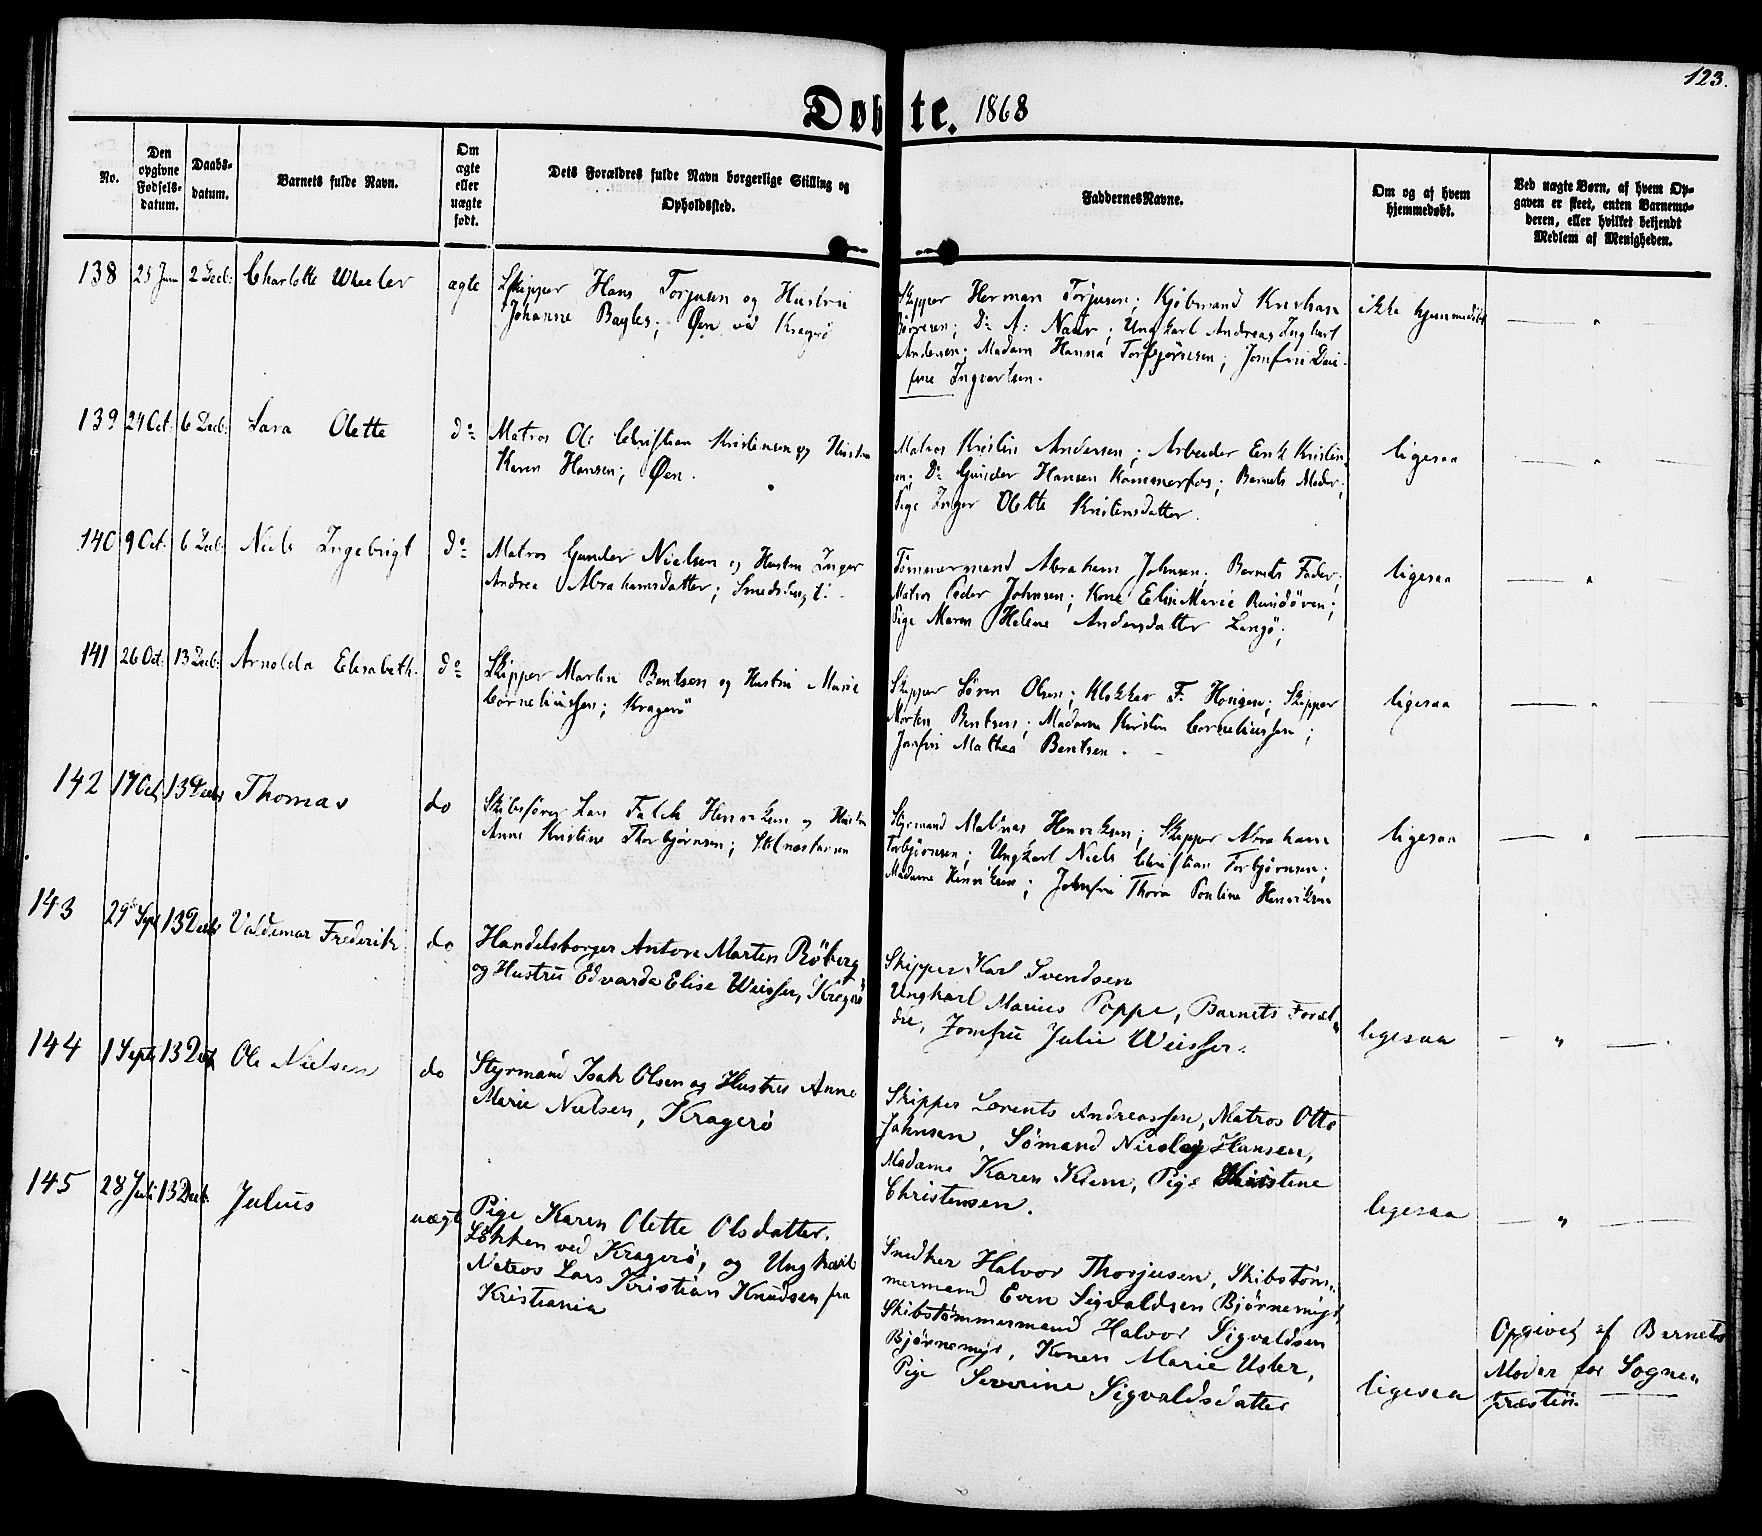 123.
Døbte. 1868
No.
Den opgivne Fødsels-datum.
Daabs-datum.
Barnets fulde Navn.
Om ægte eller uægte født.
Dets Forældres fulde Navn borgerlige Stilling og
Opholdssted.
Faddernes Navne.
Om og af hvem
hjemmedøbt.
Ved uægte Børn, af hvem Op-
gaven er skeet, enten Barnemo-
deren, eller hvilket bekjendt
Medlem af Menigheden.
138 25 Juni 2 Decb: Charlotte Wheeler ægte
Skipper Hans Torjusen og Hustru
Johanne Bayles; Øen ved Kragerø
Skipper Herman Torjusen; Kjøbmand Kristian
Børresen; Do A: Naur; Ungkarl Andreas Ingbart
Andersen; Madam Hanna Torbjørnsen; Jomfru
Ingvartsen.
ikke hjemmedøbt — " —
139 24 Oct: 6 Decb: Sara Olette do
Matros Ole Christian Kristensen og Hustru
Karen Hansen; Øen.
Matros Kristen Andersen; Arbeider Erik Kristen-
sen; Do Gunder Hansen Kammerfos; Barnets Moder;
Pige Inger Olette Kristensdatter.
ligesaa — " —
140 9 Oct: 6 Decb: Niels Ingebrigt do
Matros Gunder Nielsen og Hustru Inger
Andrea Abrahamsdatter;
Tømmermand Abraham Johnsen; Barnets Fader;
Matros Peder Johnsen; Kone Elin Marie
Pige Maren Helene Andersdatter Langø;
ligesaa — " —
141 26 Oct: 13 Decb: Arnolda Elisabeth. do
Skipper Martin Bentsen og Hustru Marie
Corneliussen; Kragerø
Skipper Søren Olsen; Klokker F. Hougen; Skipper
Morten Bentsen; Madame Kirstin Corneliussen;
Jomfru Mathea Bentsen.
ligesaa — " —
142 17 Oct 13 Decb Thomas do
Skibsfører Lars Falck Henriksen og Hustru
Anne Kristine Thorbjørnsen;
Styrmand Henriksen; Skipper Abraham
Torbjørnsen; Ungkarl Niels Christian Torbjørnsen;
Madame Henriksen; Jomfru Thora Pouline Henriksen
ligesaa — " —
143 29 Sept 13 Decb Valdemar Frederik do
Handelsborger Anton Marten Röberg
og Hustru Edvarda Elise Weisser, Kragerø
Skipper Karl Svendsen
Ungkarl Marius Poppe, Barnets Foræl-
dre, Jomfru Julie Weisser.
ligesaa — " —
144 1 Septb 13 Decb Ole Nielsen do
Styrmand Isak Olsen og Hustru Anne
Marie Nielsen, Kragerø
Skipper Lorents Andreassen, Matros Otto
Jahnsen, Sømand Nicolay Hansen,
Madame Karen Klem, Pige Christine
Christensen.
ligesaa — " —
145 28 Juli 13 Decb. Julius uægt
Pige Karen Olette Olsdatter.
Løkken ved Kragerø, og Ungkarl
Matros Lars Kristian Knudsen fra
Kristiania
Snedker Halvor Thorjusen, Skibstøm-
mermand Even Sigvaldsen Bjørnemyr,
Skibstømmermand Halvor Sigvaldsen
Bjørnemyr, Konen Marie Usler,
Pige Severine Sigvaldsdatter
ligesaa
Opgivet af Barnets
Moder for Sogne-
præsten.